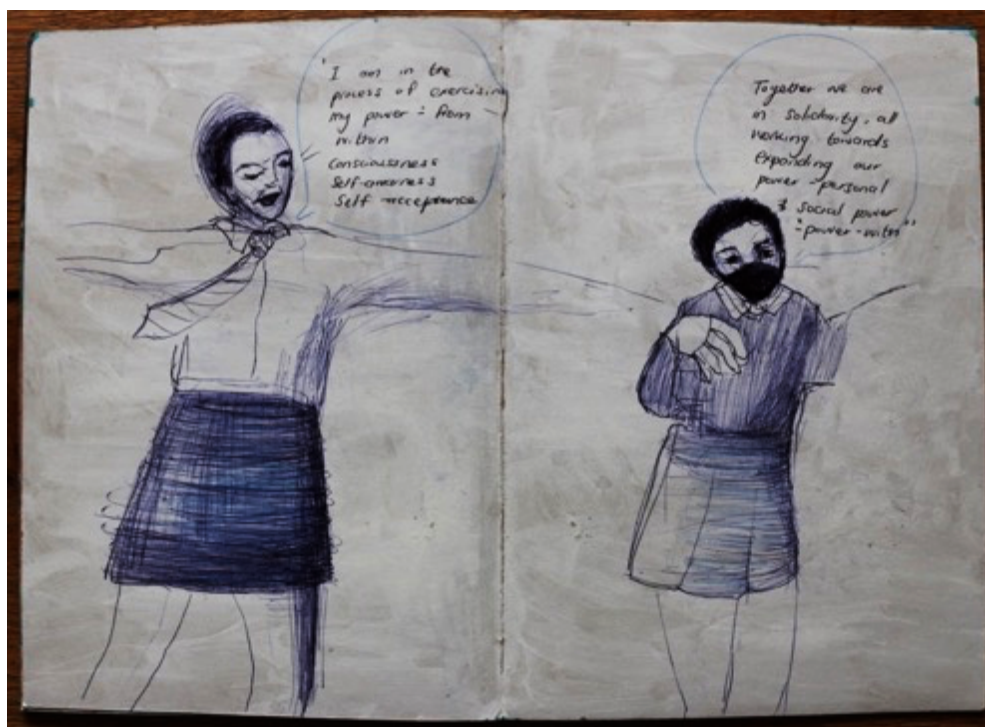 ' I am in the
process of exercising
my power - from
within
Consciousness
Self-awareness
Self acceptance
Together we are
in solidarity, all
working towards
expanding our
power - personal
& social power
"power-with"